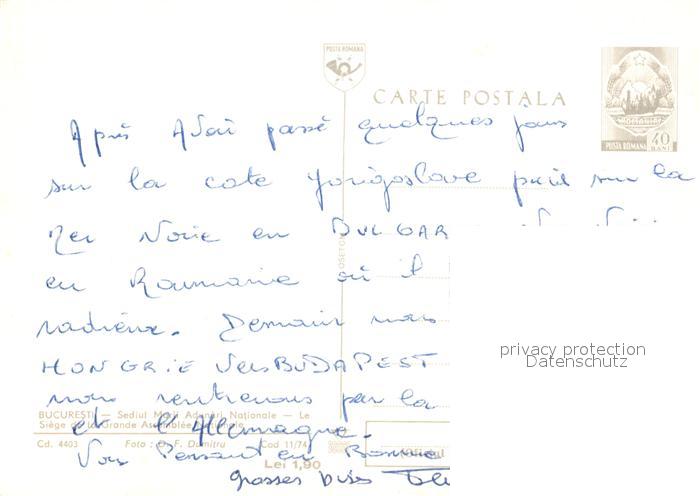 POSTA ROMANA
CARTE POSTALA
POSTA ROMANA 40 BANI
Après Avoir passé quelques jours
sur la cote yougoslave puis sur la
Mer Noire en BULGAR
en Roumanie où il
radieux. Demain nous
HONGRIE vers BUDAPEST
nous rentrerons par la
et l'Allemagne.
privacy protection
Datenschutz
BUCUREȘTI — Sediul Marii Adunări Naționale — Le
Siège de la Grande Assemblée Nationale
Cd. 4403 Foto: D. F. Dumitru Cod 11/74
Lei 1,90
Vous Pensant en Bonne
grosses bises